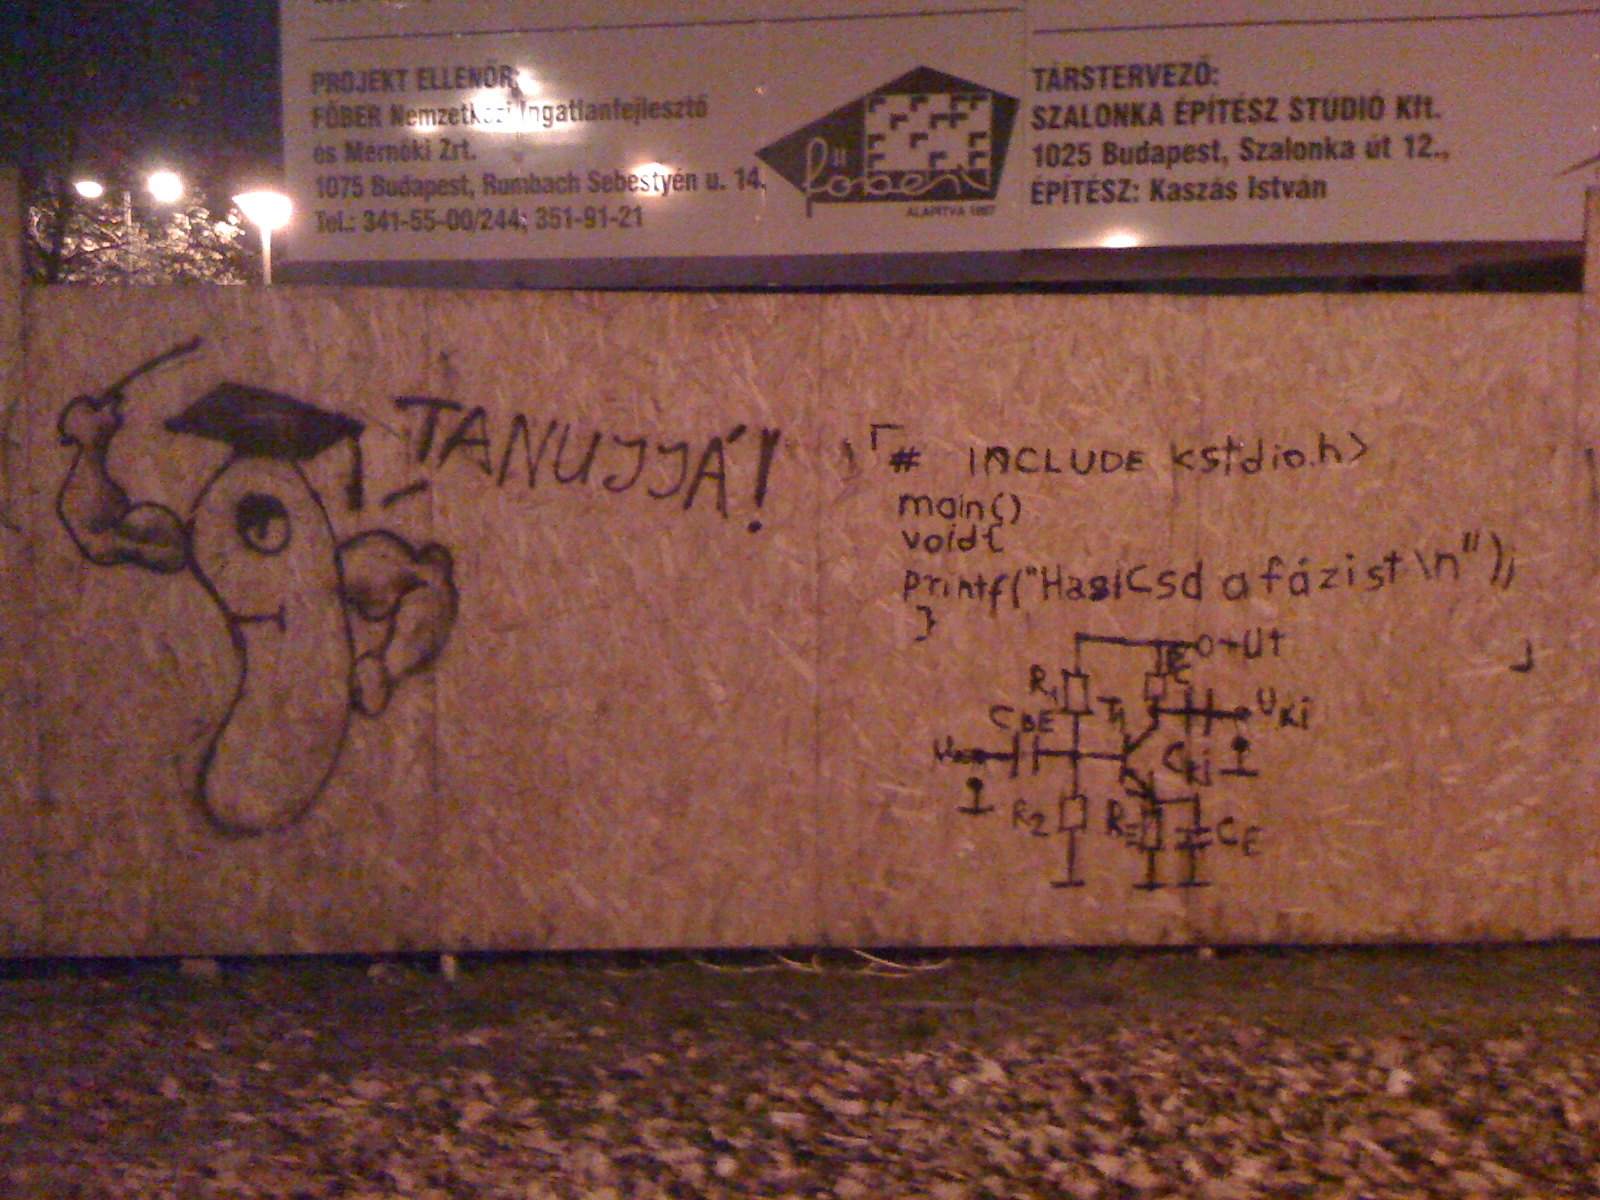 PROJEKT ELLENŐR:
FŐBER Nemzetközi Ingatlanfejlesztő
és Mérnöki Zrt.
1075 Budapest, Rumbach Sebestyén u. 14.
Tel.: 341-55-00/244; 351-91-21
főber
ALAPÍTVA 1957
TÁRSTERVEZŐ:
SZALONKA ÉPÍTÉSZ STÚDIÓ Kft.
1025 Budapest, Szalonka út 12.,
ÉPÍTÉSZ: Kaszás István
TANUJJÁ!
# INCLUDE <stdio.h>
main()
void{
printf("HasiCsd a fázist \n");
}
+UT
R1
CBE
T1
Uki
Cki
R2
RE
CE